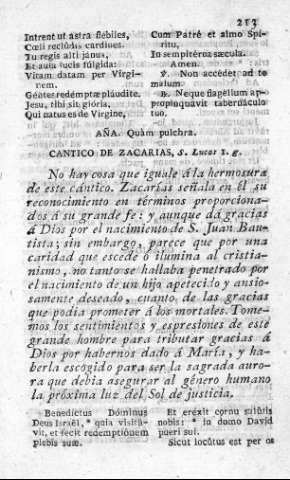 213
Intrent ut astra flébiles,
Cœli reclúdis cardines.
Tu regis alti jánua,
Et aula lucis fúlgida:
Vitam datam per Virgi-
nem,
Géntes redémptæ pláudite.
Jesu, tibi sit glória,
Qui natus es de Virgine,
Cum Patré et almo Spi-
ritu,
In sempitérna sæcula.
Amen.
℣. Non accédet ad te
malum.
℟. Neque flagéllum ap-
propinquávit tabernáculo
tuo.
AÑA. Quàm pulchra.
CANTICO DE ZACARIAS, S. Lucas I. g.
No hay cosa que iguale á la hermosura
de este cántico. Zacarías señala en él su
reconocimiento en términos proporciona-
dos á su grande fe: y aunque da gracias
á Dios por el nacimiento de S. Juan Bau-
tista; sin embargo, parece que por una
caridad que escede ó ilumina al cristia-
nismo, no tanto se hallaba penetrado por
el nacimiento de un hijo apetecido y ansio-
samente deseado, cuanto de las gracias
que podia prometer á los mortales. Tome-
mos los sentimientos y espresiones de este
grande hombre para tributar gracias á
Dios por habernos dado á María, y ha-
berla escogido para ser la sagrada auro-
ra que debia asegurar al género humano
la próxima luz del Sol de justicia.
Benedíctus Dóminus
Deus Israël, * quia visitá-
vit, et fecit redemptiónem
plebis suæ.
Et eréxit cornu salútis
nobis: * in domo David
púeri sui.
Sicut locútus est per os